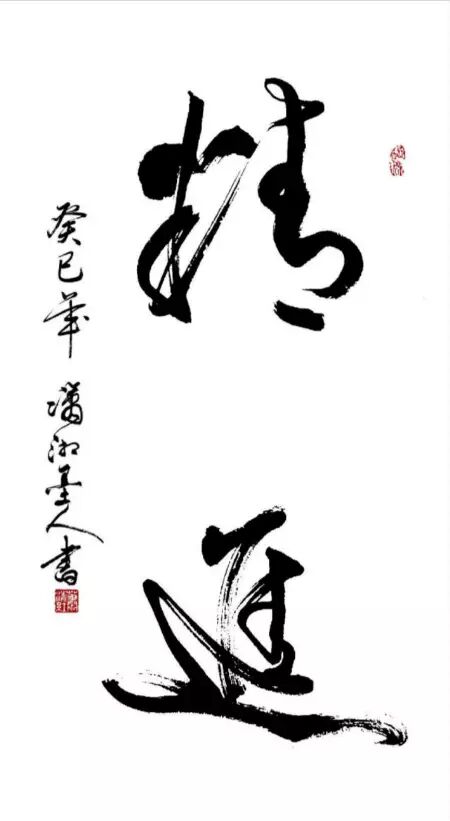 精進
癸巳年 瀟湘墨人書